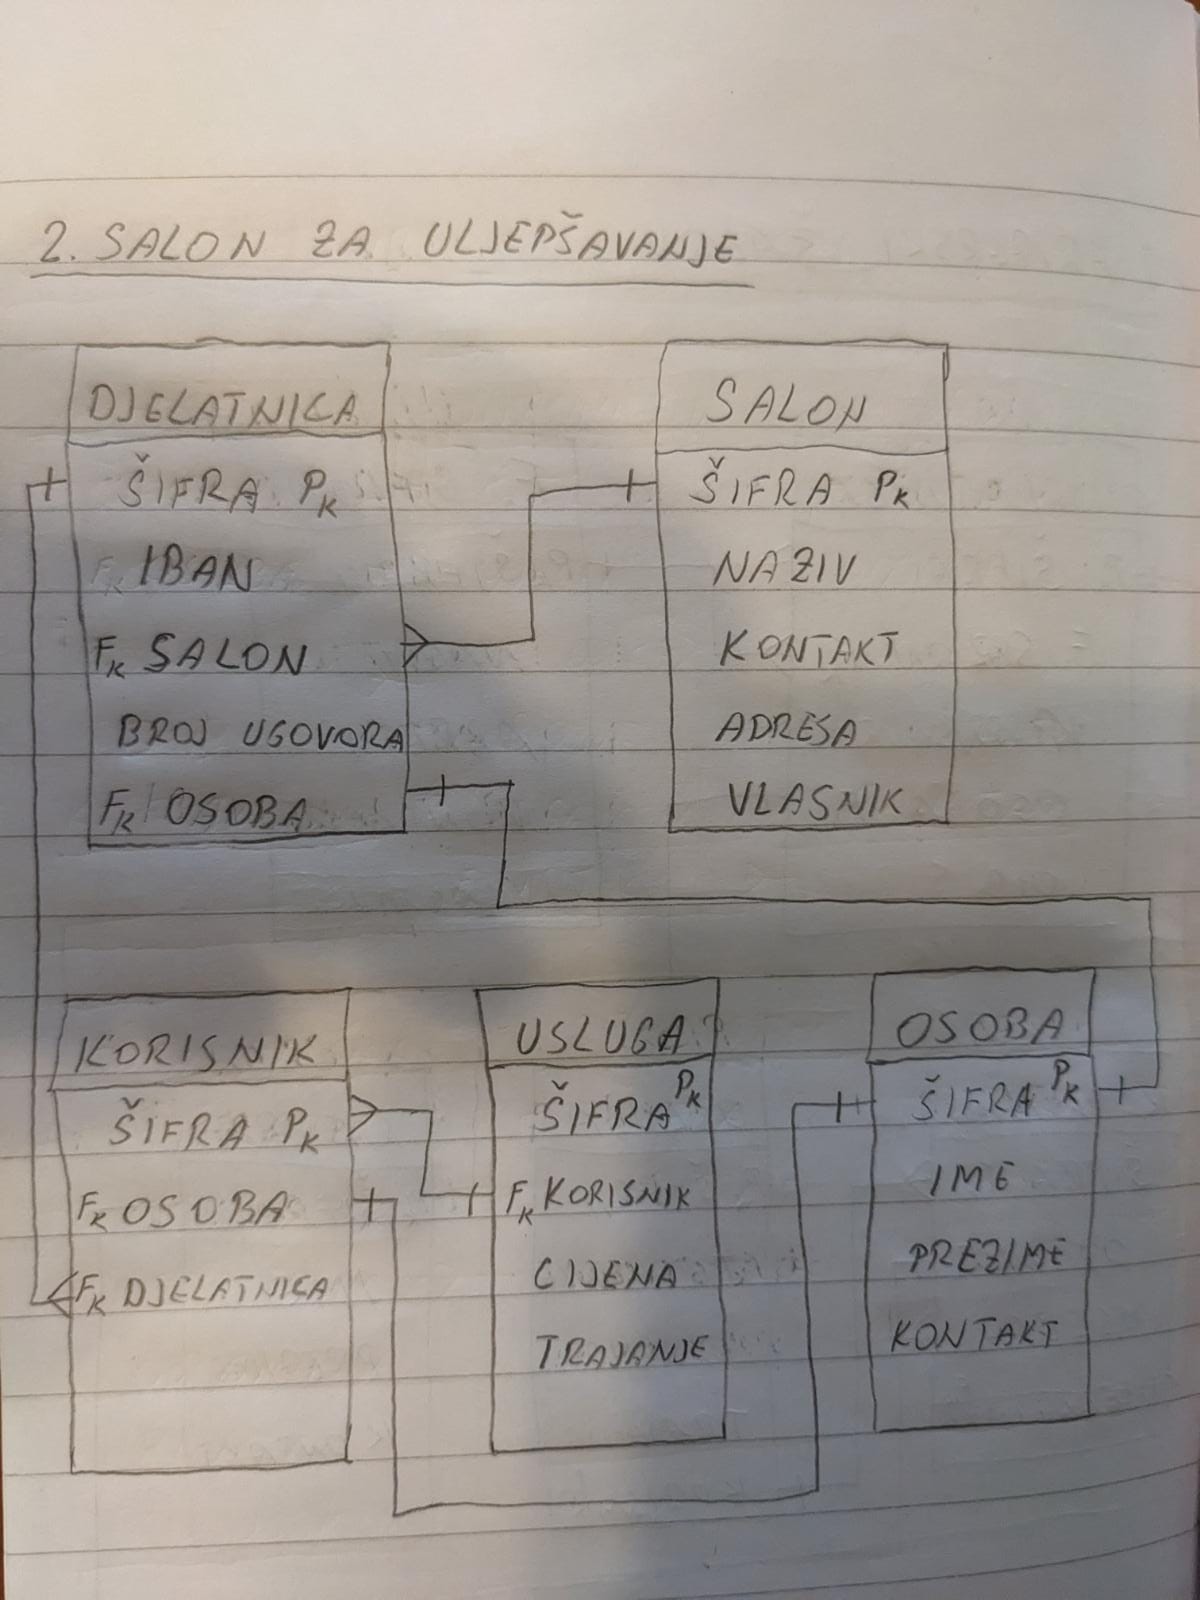 2. SALON ZA ULJEPŠAVANJE
DJELATNICA
ŠIFRA PK
IBAN
FK SALON
BROJ UGOVORA
FK OSOBA
SALON
ŠIFRA PK
NAZIV
KONTAKT
ADRESA
VLASNIK
KORISNIK
ŠIFRA PK
FK OSOBA
FK DJELATNICA
USLUGA
ŠIFRA PK
FK KORISNIK
CIJENA
TRAJANJE
OSOBA
ŠIFRA PK
IME
PREZIME
KONTAKT